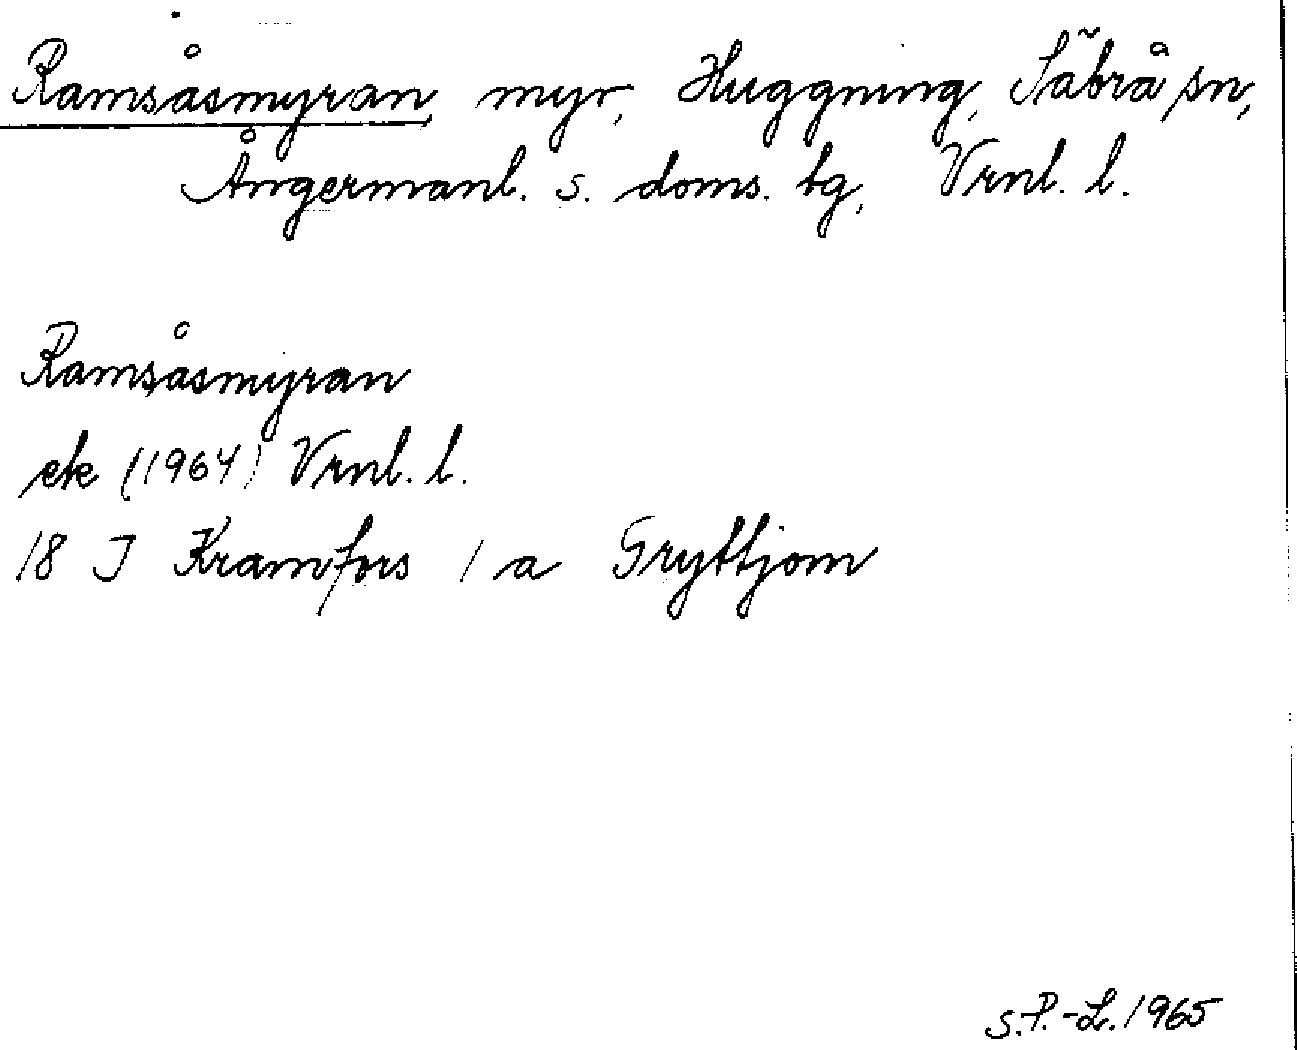 Ramsåsmyran, myr, Huggning, Säbrå sn,
Ångermanl. s. doms. tg, Vrnl. l.
Ramsåsmyran
ek (1964) Vrnl. l.
18 J Kramfors 1 a Gryttjom
S.P.-L. 1965